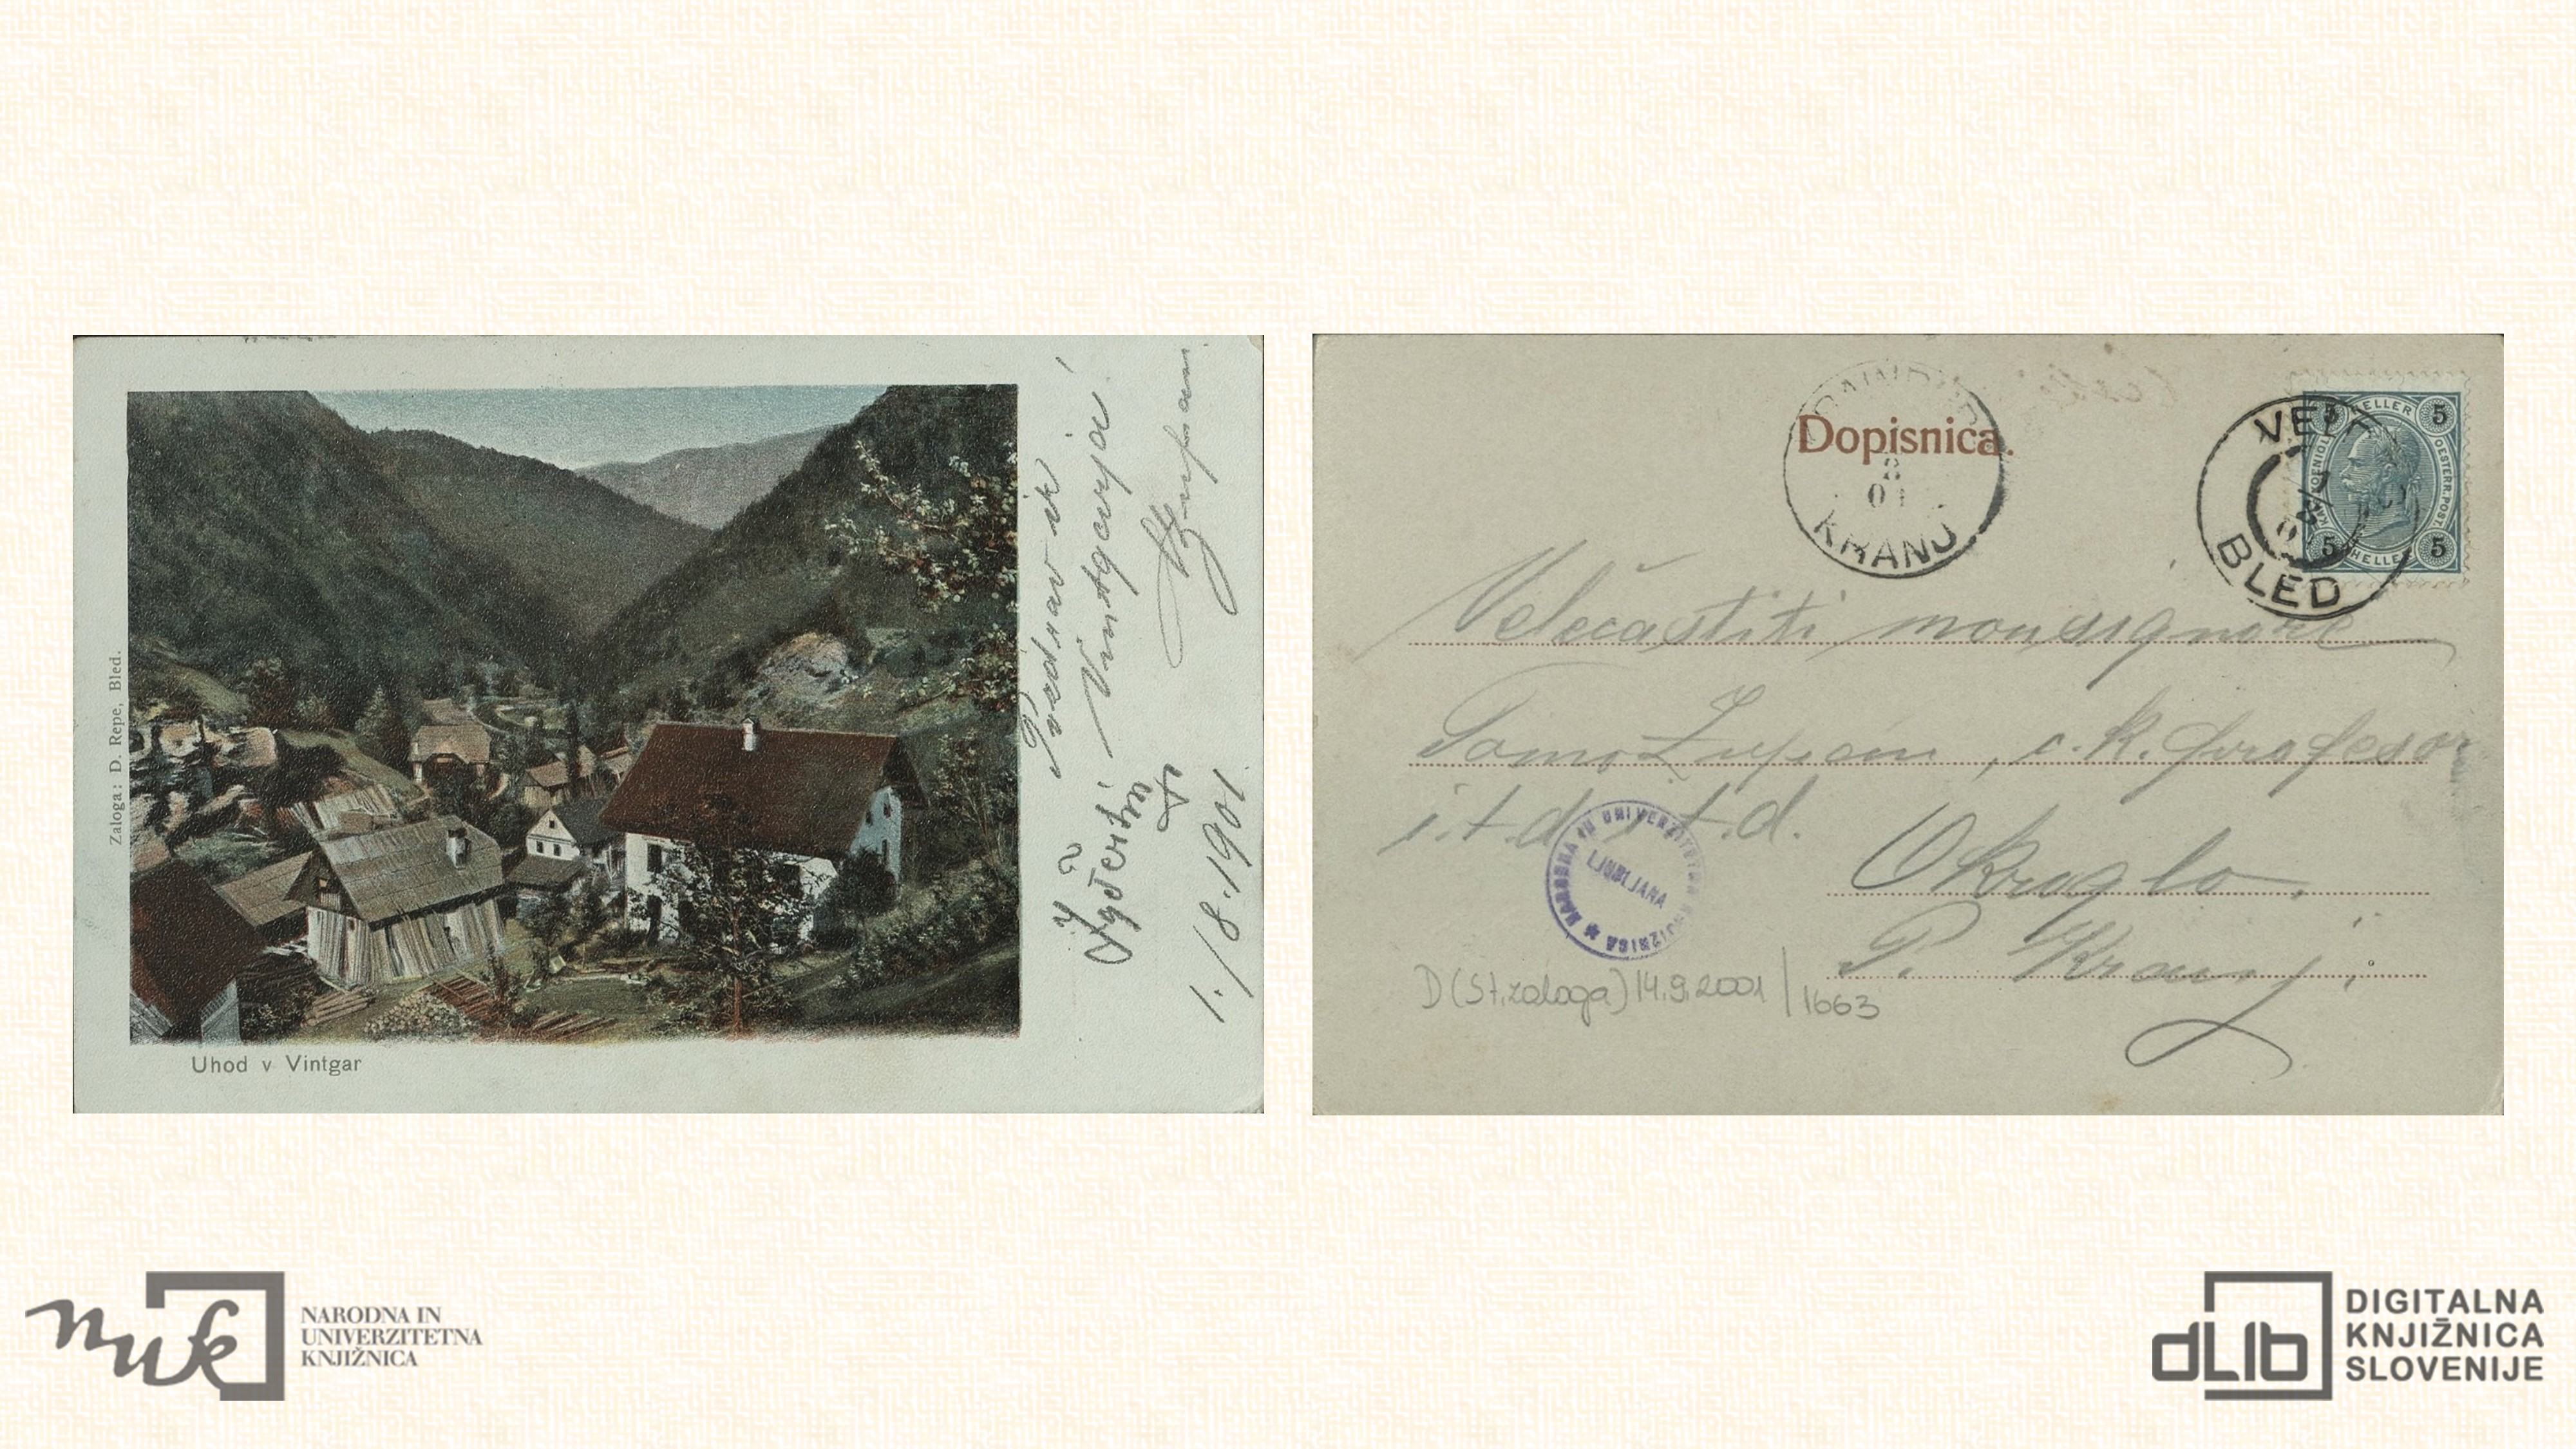 Zaloga: D. Repe, Bled.
Uhod v Vintgar
Pozdrav iz
Vintgarja!
1./8. 1901
Dopisnica.
KRANJ
VELD
BLED
5 HELLER 5
KAIS. KOENIGL. OESTERR. POST.
5 HELLER 5
Velečastiti monsignore
Tomo Zupan, c. k. profesor
i. t. d. i. t. d.
Okroglo,
P. Kranj.
NARODNA IN UNIVERZITETNA KNJIŽNICA
LJUBLJANA
D (St. zaloga) 14.9.2001 / 1663
nuk
NARODNA IN
UNIVERZITETNA
KNJIŽNICA
dLib
DIGITALNA
KNJIŽNICA
SLOVENIJE